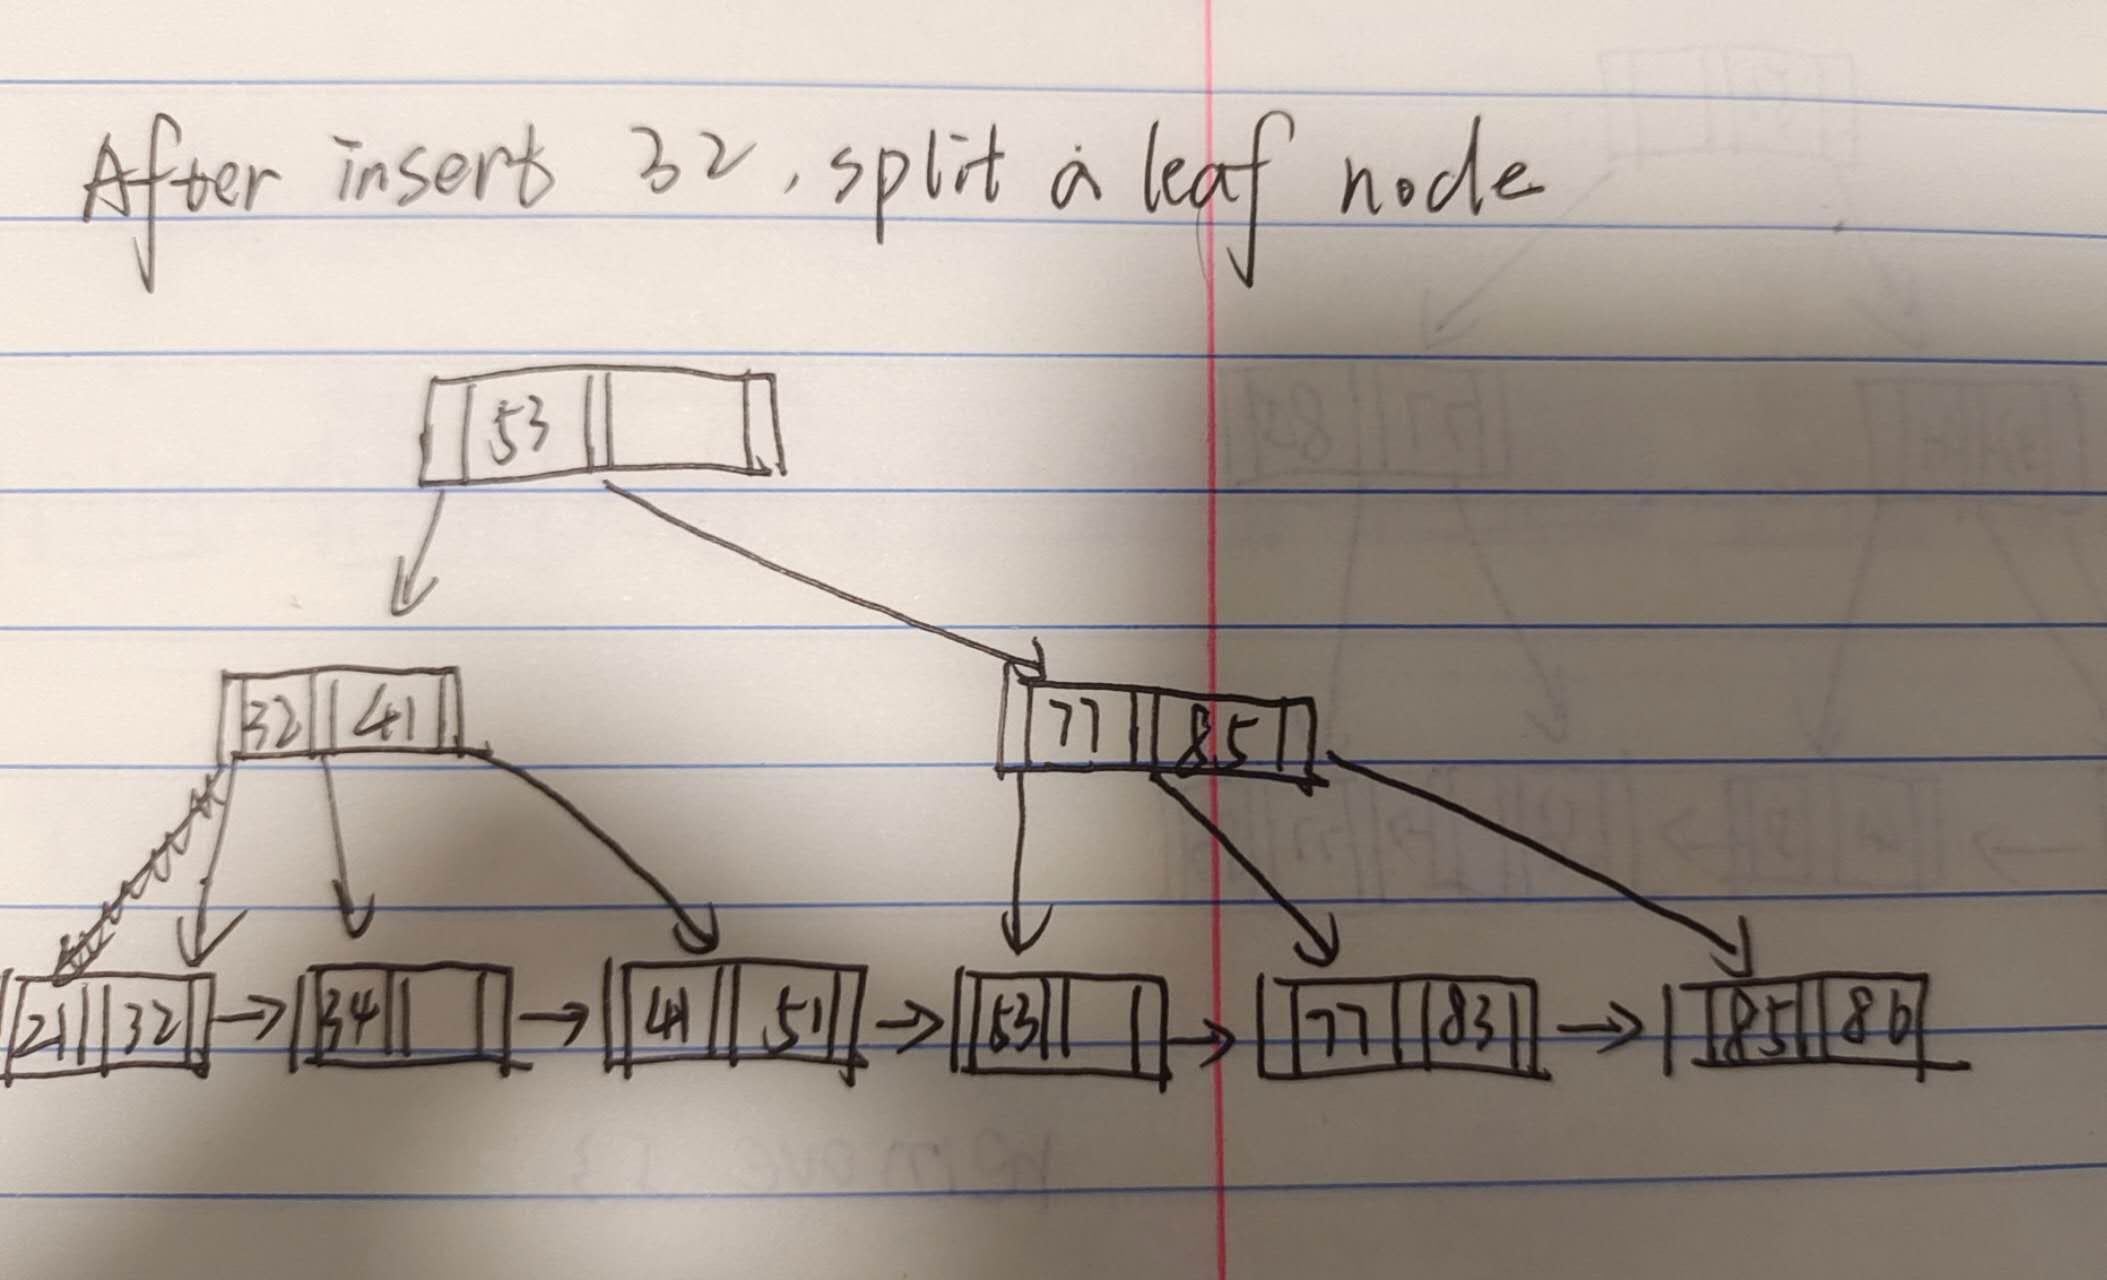 After insert 32, split a leaf node
53
32 41
77 85
21 32 → 34 → 41 51 → 53 → 77 83 → 85 86